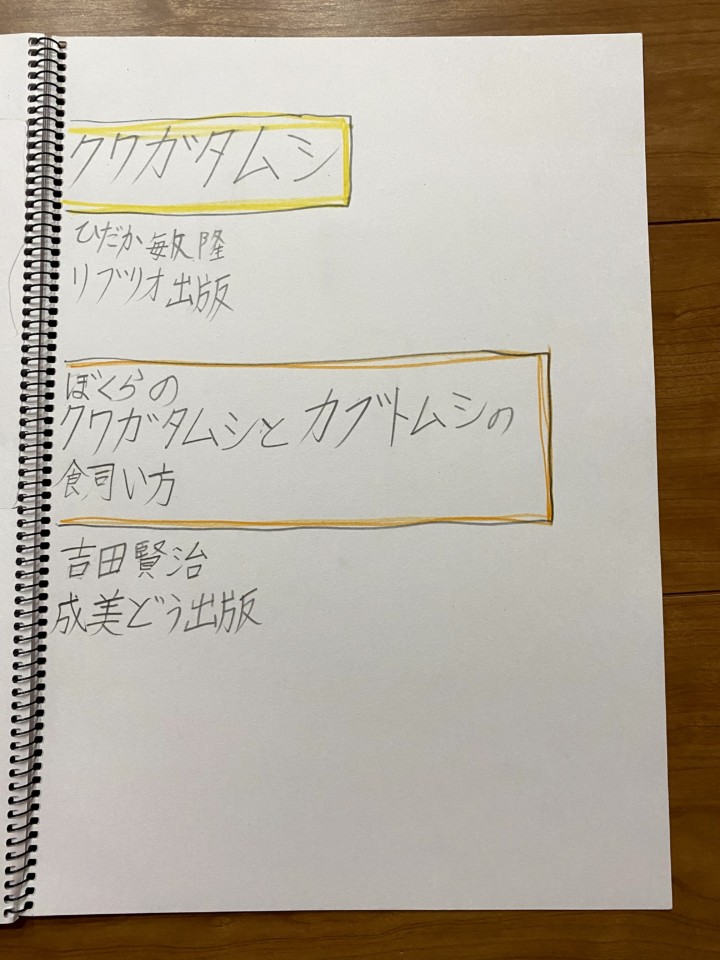 クワガタムシ
ひだか敏隆
リブリオ出版
ぼくらの
クワガタムシとカブトムシの
飼い方
吉田賢治
成美どう出版